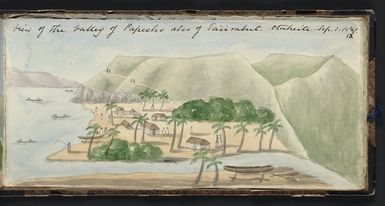 View of the Valley of Papeeho also of Tairabut. Otaheite. Sep. 1. 1849.